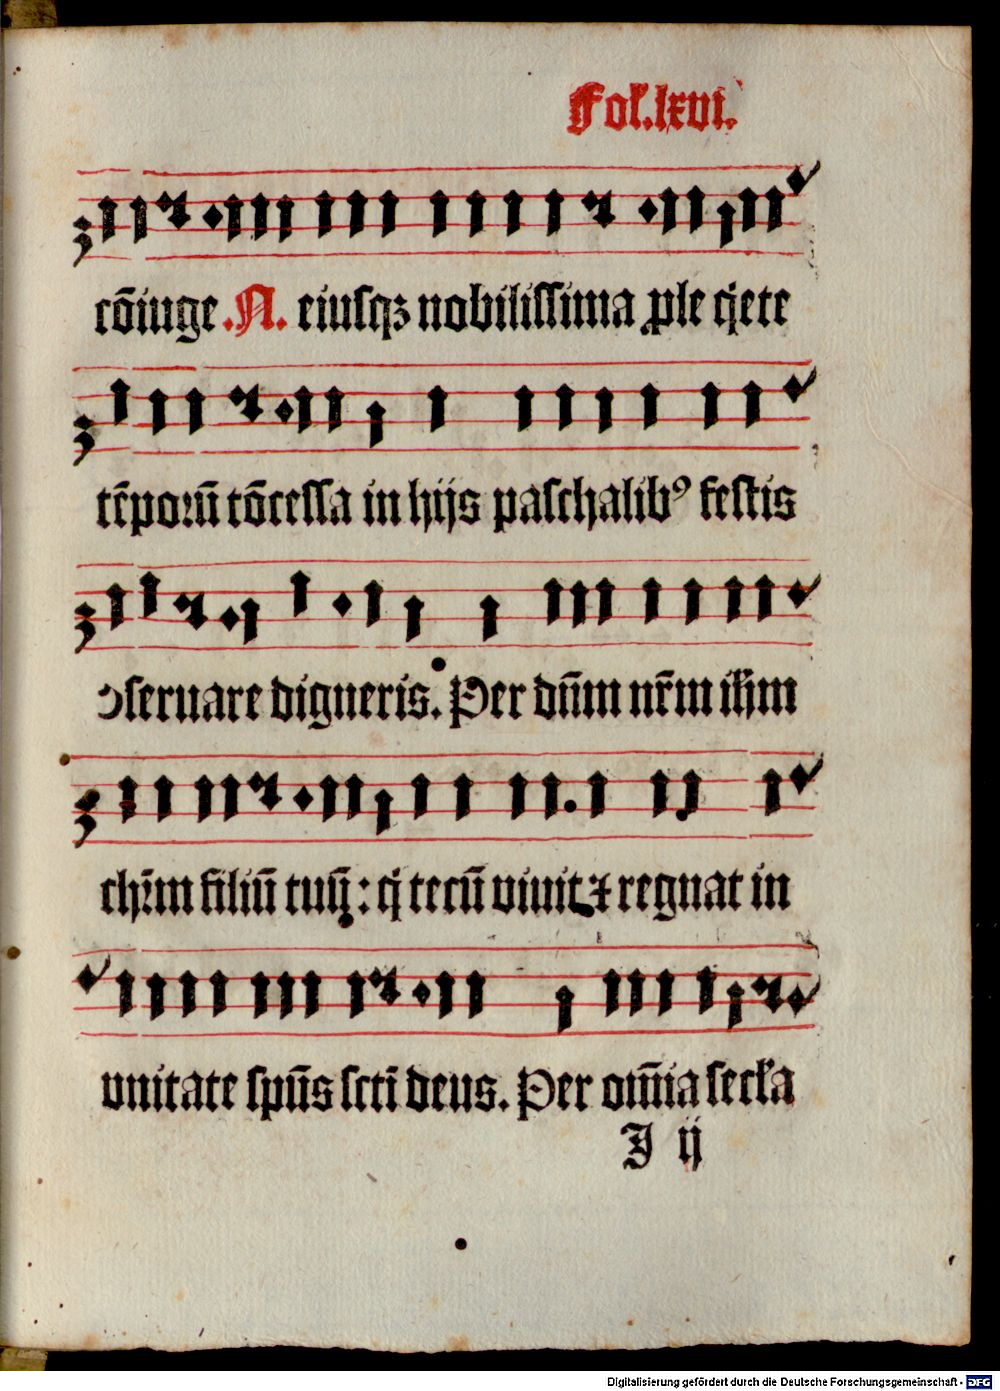 Fol. lxvi.
cōiuge .N. eiusqꝫ nobilissima ꝓle q̄ete
tēporū cōcessa in hijs paschalibꝰ festis
ↄseruare digneris. Per dn̄m nr̄m ih̄m
chr̄m filiū tuū: q̄ tecū viuit ⁊ regnat in
vnitate spūs sctī deus. Per om̄ia secl̄a
J ij
Digitalisierung gefördert durch die Deutsche Forschungsgemeinschaft - DFG